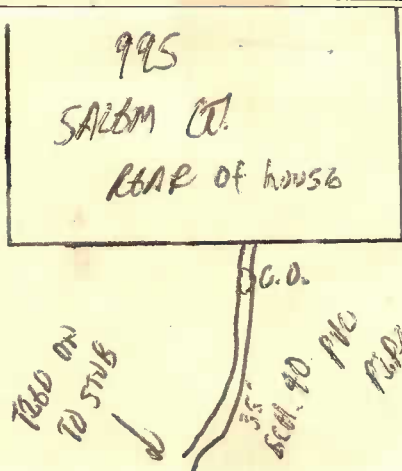 995
SALEM CT.
REAR OF HOUSE
C.O.
TIED ON
TO STUB
35'
SCH. 40 PVC